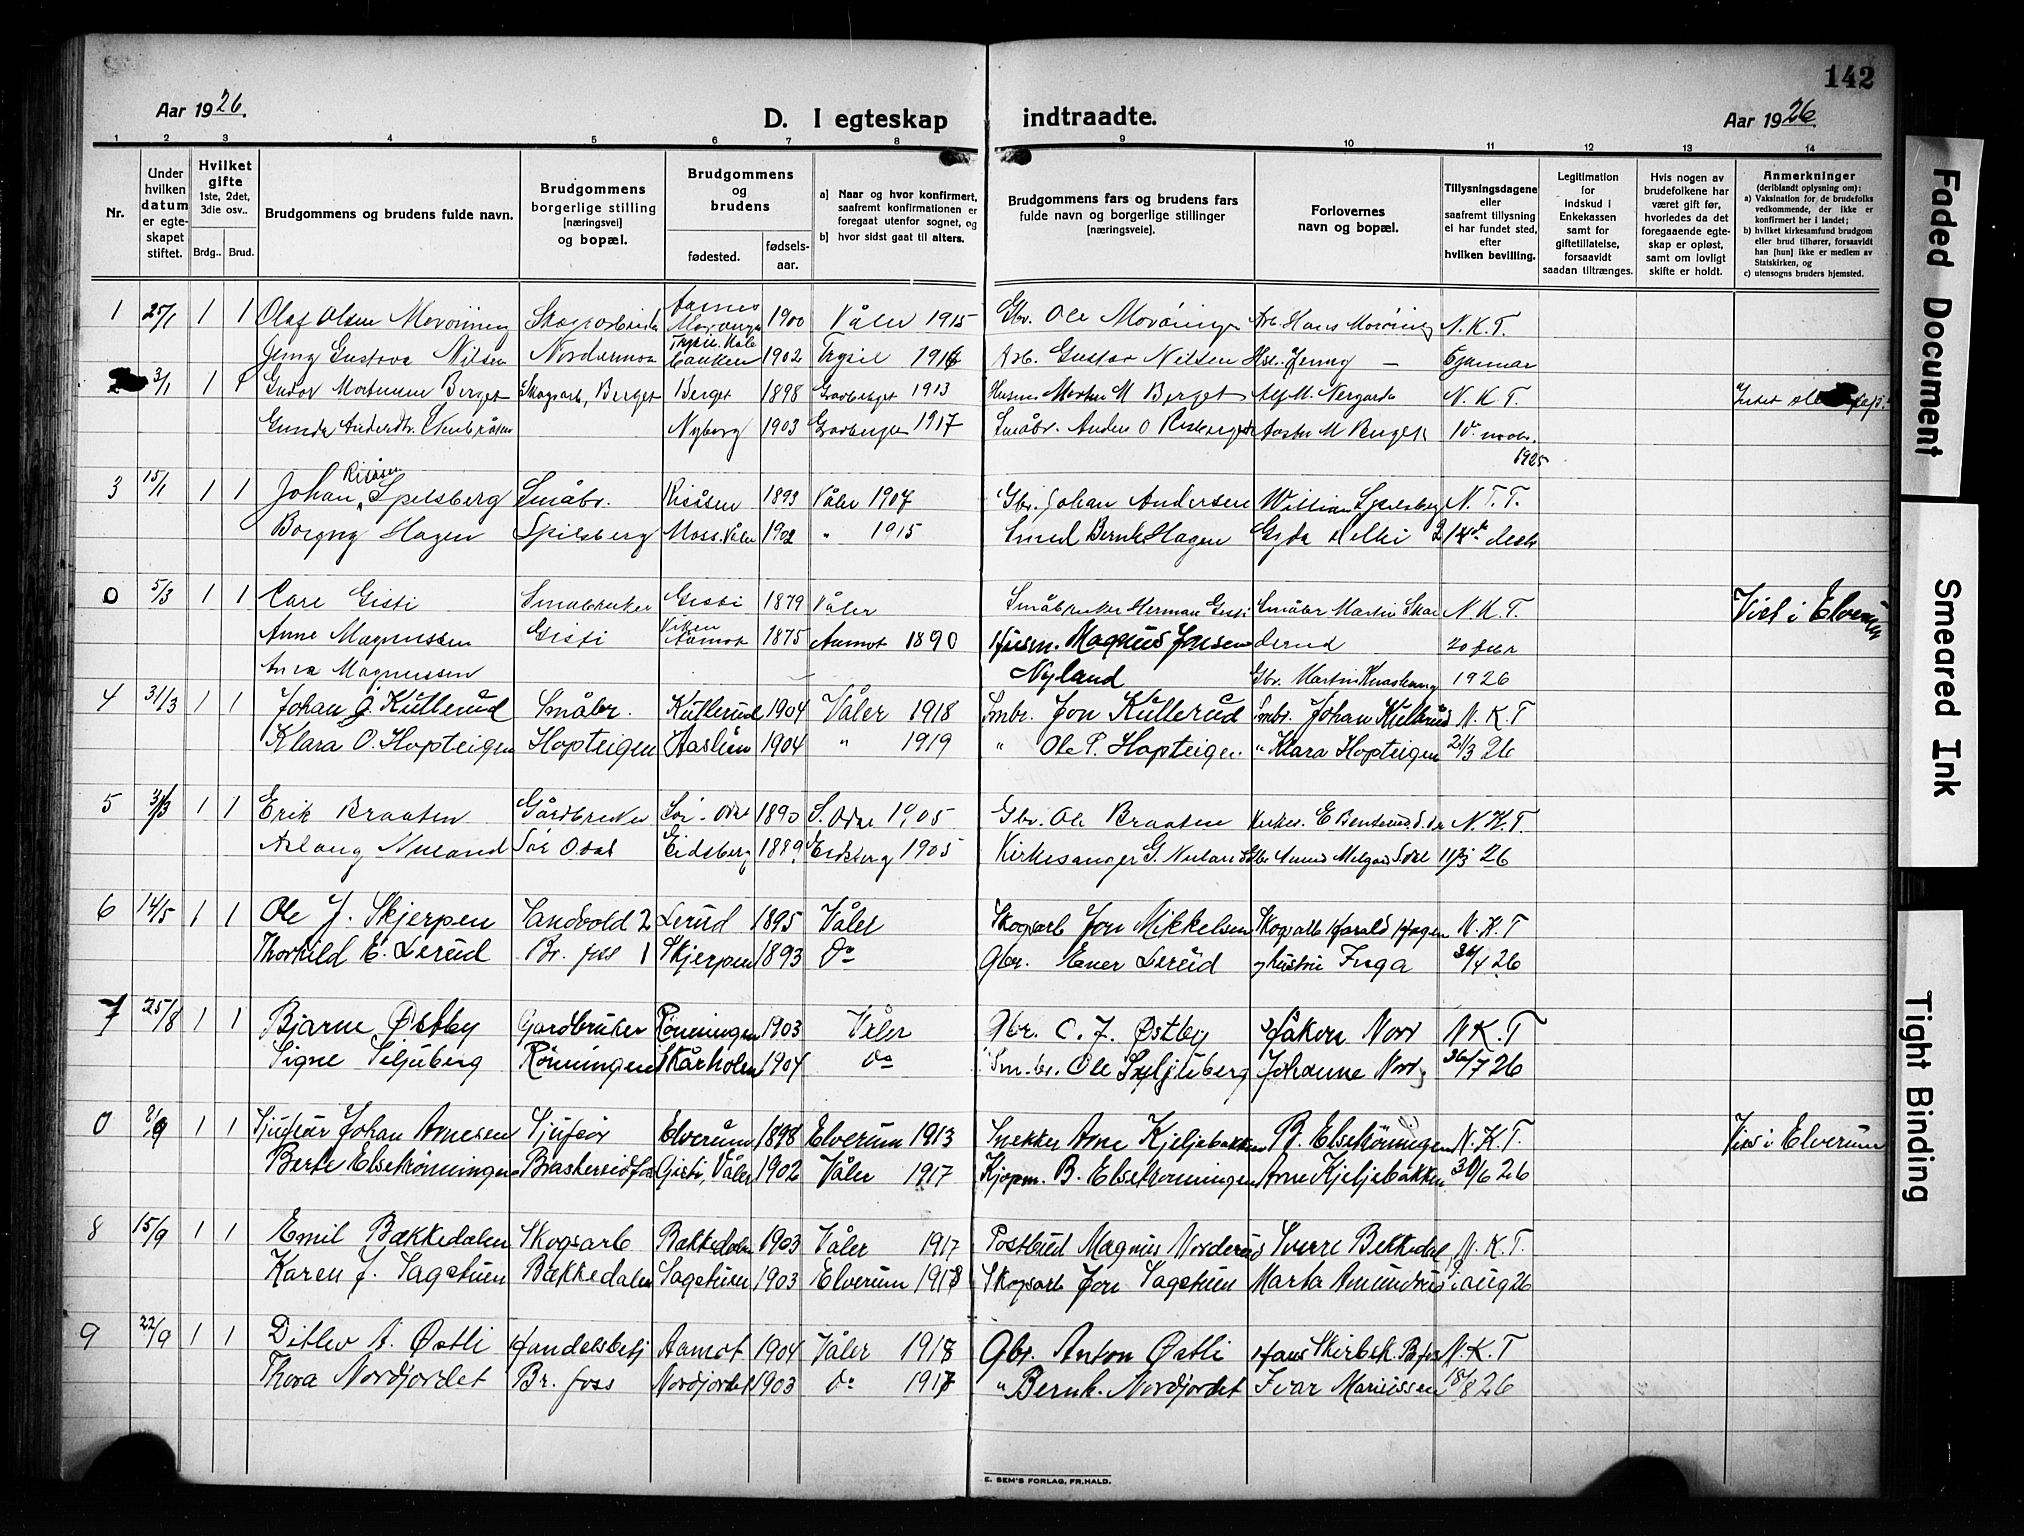 142
Aar 1926.
D. I egteskap indtraadte.
Aar 1926
1 2 3 4 5 6 7 8 9 10 11 12 13 14
Nr.
Under hvilken datum er egte-skapet stiftet.
Hvilket gifte 1ste, 2det, 3die osv..
Brdg.. Brud.
Brudgommens og brudens fulde navn.
Brudgommens borgerlige stilling [næringsvei] og bopæl.
Brudgommens og brudens
fødested.
fødsels-aar.
a) Naar og hvor konfirmert, saafremt konfirmationen er foregaat utenfor sognet, og
b) hvor sidst gaat til alters.
Brudgommens fars og brudens fars fulde navn og borgerlige stillinger [næringsveie].
Forlovernes navn og bopæl.
Tillysningsdagene eller saafremt tillysning ei har fundet sted, efter hvilken bevilling.
Legitimation for indskud i Enkekassen samt for giftetillatelse, forsaavidt saadan tiltrænges.
Hvis nogen av brudefolkene har været gift før, hvorledes da det foregaaende egte-skap er opløst, samt om lovligt skifte er holdt.
Anmerkninger (deriblandt oplysning om):
a) Vaksination for de brudefolks vedkommende, der ikke er konfirmert her i landet;
b) hvilket kirkesamfund brudgom eller brud tilhører, forsaavidt han [hun] ikke er medlem av Statskirken, og
c) utensogns bruders hjemsted.
1 25/1 1 1 Olaf Olsen 1900 Våler 1915 Gbr. Ole Arb. Hans N. K. T.
Jenny Gustava Nilsen Nordermoen 1902 Trysil 1916 Arb. Gustav Nilsen Jenny — 6 januar
3/1 1 1 Gudov Mortensen Berget Skogsarb, Berget Berget 1898 Gravberget 1913 Morten M Berget N. K. T.
Gunda Nyborg 1903 Gravberget 1917 Småbr. Anders O M Berget 10de novbr.
1925
3 15/1 1 1 Johan Risåsen Spilsberg Småbr. Risåsen 1893 Våler 1907 Gbr. Johan Andersen William Spilsberg N. T. T.
Borgny Hagen Spilsberg Moss. Våler 1902 " 1915 Smed Bernh. Hagen Gyda 14de desbr
0 5/3 1 1 Carl Gisti Småbruker Gisti 1879 Våler Småbruker Herman Gisti Småbr Martin Skar N. K. T. Viet i Elverum
Anne Magnussen Gisti Aamot 1875 Aamot 1890 Husm. Magnus Jensen derud 20 febr
Anna Magnussen Nyland Gbr. Martin 1926
4 31/3 1 1 Johan J. Kullerud Småbr. Kullerud 1904 Våler 1918 Smbr. Jon Kullerud Smbr. Johan Kullerud N. K. T
Klara O. Hopteigen Hopteigen Haslun 1904 " 1919 " Ole P. Hopteigen " Klara Hopteigen 21/3 26
5 1 1 Erik Braaten Gårdbruker Sør-Odal 1890 S. Odal 1905 Gbr. Ole Braaten N. K. T.
Aslaug Nuland Sør Odal Eidsberg 1889 Eidsberg 1905 Kirkesanger G. Nuland 26
6 14/5 1 1 Ole J. Skjerpen Sandvold 2 Lerud 1895 Våler Skogsarb Jon Mikkelsen Skogsarb Harald Hagen N. K. T
Thorhild E. Lerud Br. foss 1 Skjerpen 1893 Do Gbr. Ener Lerud og hustru Inga 26/4 26
7 25/8 1 1 Bjarne Østby Gardbruker Rønningen 1903 Våler Gbr. C. J. Østby Håkon Nord N K. T
Signe Siljuberg Rønningen Skårholen 1904 do Sm.br. Ole Syljuberg Johanne Nord 26/7 26
0 1 1 Sjufør Johan Arnesen Sjufør Elverum 1898 Elverum 1913 Snekker Arne Kjeljebakken B. Elsetrønningen N. K. T. Vies i Elverum
Berte Elsetrønningen Braskereidfoss Gisti, Våler 1902 Våler 1917 Kjøpm. B. Elsetrønningen Arne Kjeljebakken 30/6 26
8 15/9 1 1 Emil Bækkedalen Skogsarb Bækkedalen 1903 Våler 1917 Postbud Magnus Sverre Bekkedal N. K. T.
Karen J. Sagstuen Bækkedalen Sagstuen 1903 Elverum 1918 Skogsarb Jon Sagstuen Marta Amundrud aug 26
9 22/9 1 1 Ditlev A. Østli Handelsbetj Aamot 1904 Våler 1918 Gbr. Anton Østli Hans Skirbek. N. K. T
Thora Nordjordet Br. foss Nordjordet 1903 do 1917 " Bernh. Nordjordet Ivar Mariussen 18/8 26
E. SEM'S FORLAG, FR.HALD.
Faded Document
Smeared Ink
Tight Binding